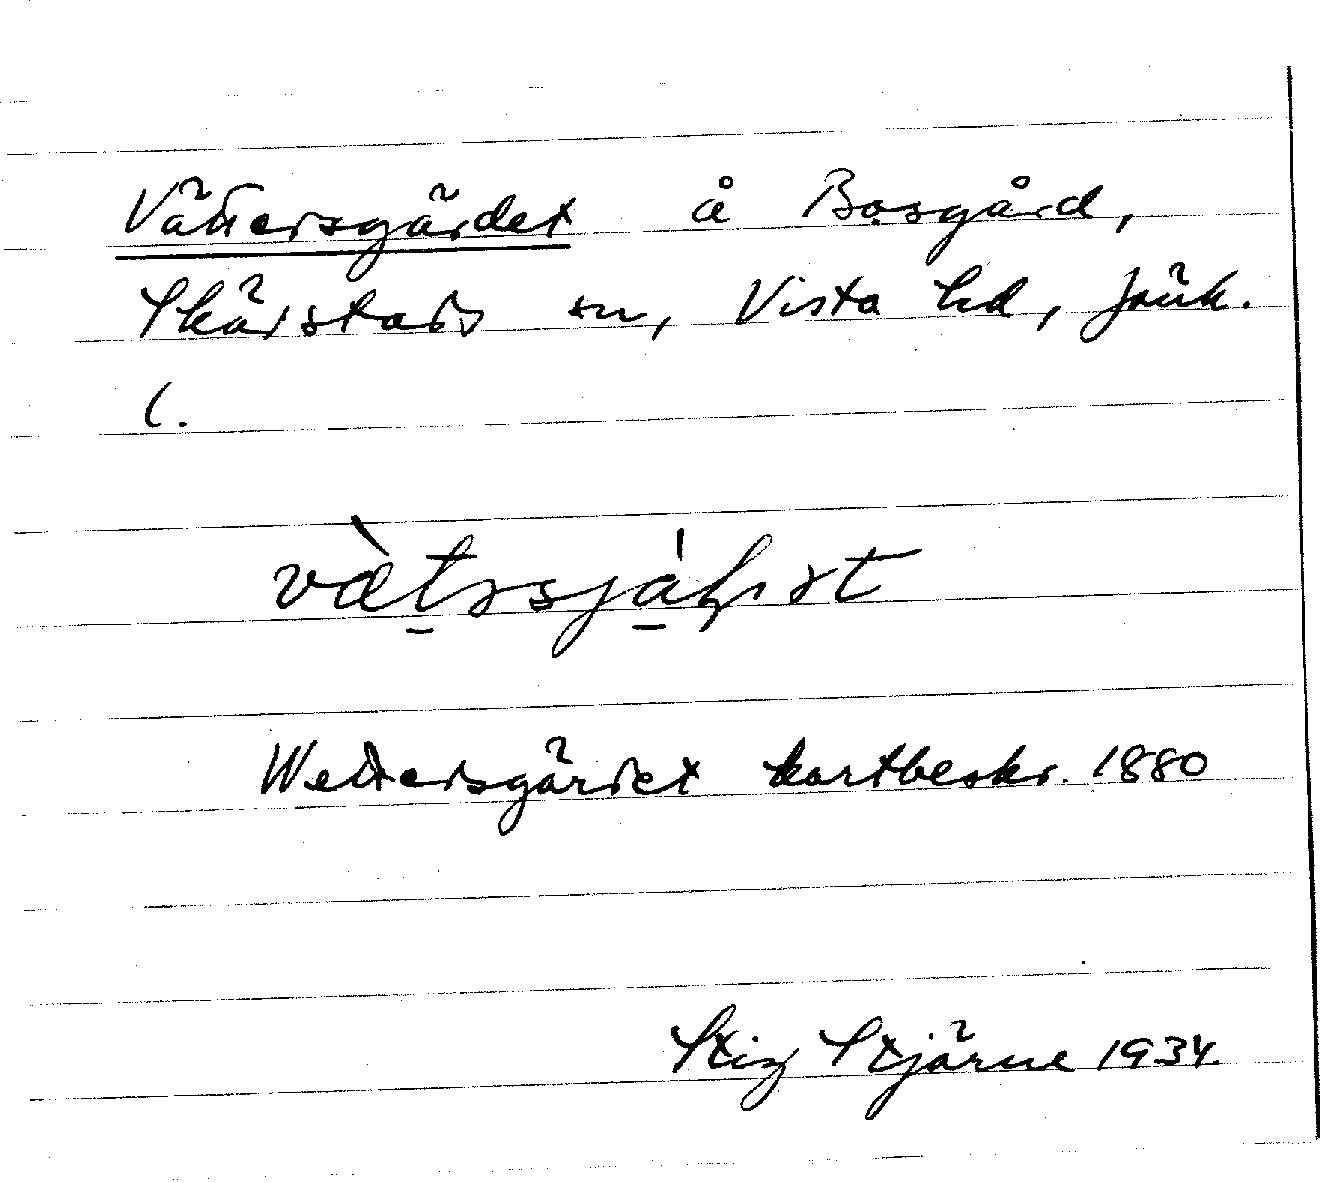 Vättersgärdet å Bosgård,
Skärstads sn, Vista hd, Jönk.
l.
Wettersgärdet kartbeskr. 1880
Stig Stjärne 1934.